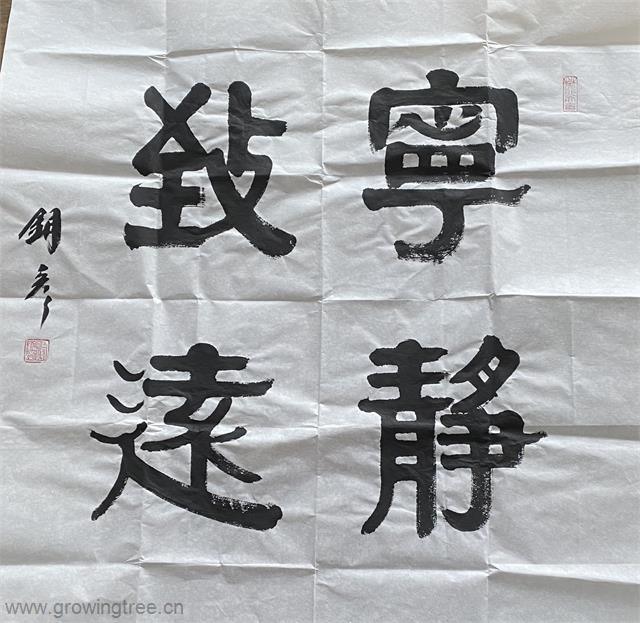 寧靜
致遠
www.growingtree.cn